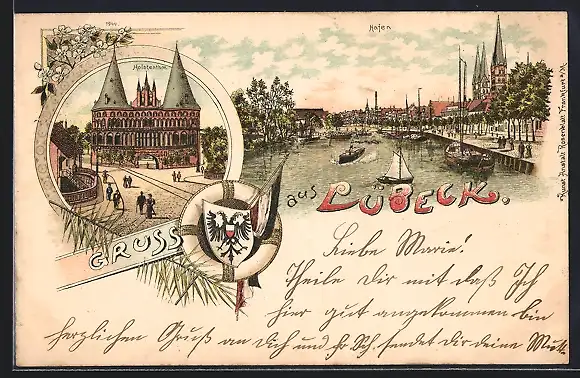 1944.
Holstenthor.
Hafen
GRUSS
aus LÜBECK.
Kunst-Anstalt Rosenblatt, Frankfurt a/M.
Liebe Marie!
Theile Dir mit daß Ich
hier gut angekommen bin
herzlichen Gruß an Dich und Sch. sendet dir deine